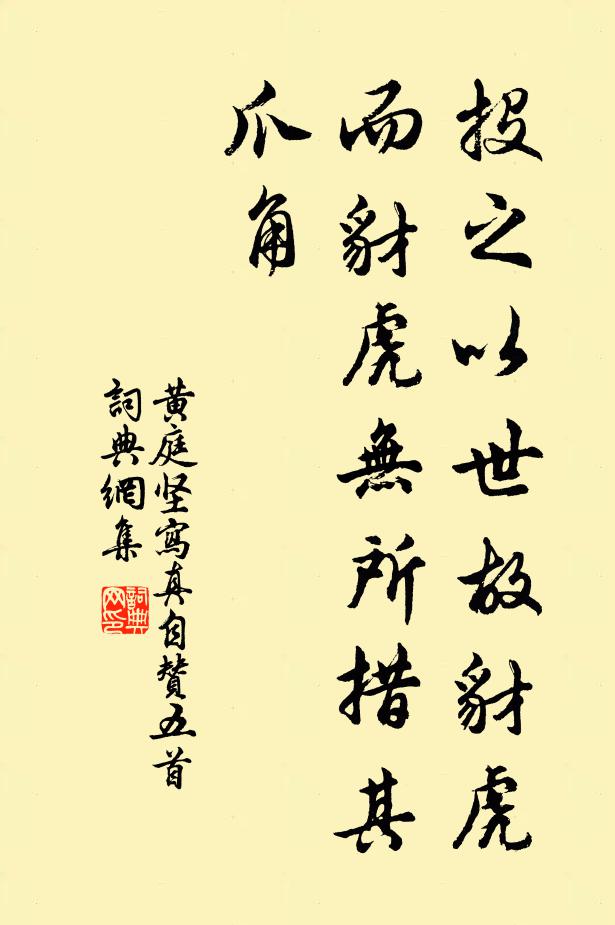 投之以世故豺虎
而豺虎無所措其
爪角
黄庭坚寫真自赞五首
詞典網集
詞典
网印